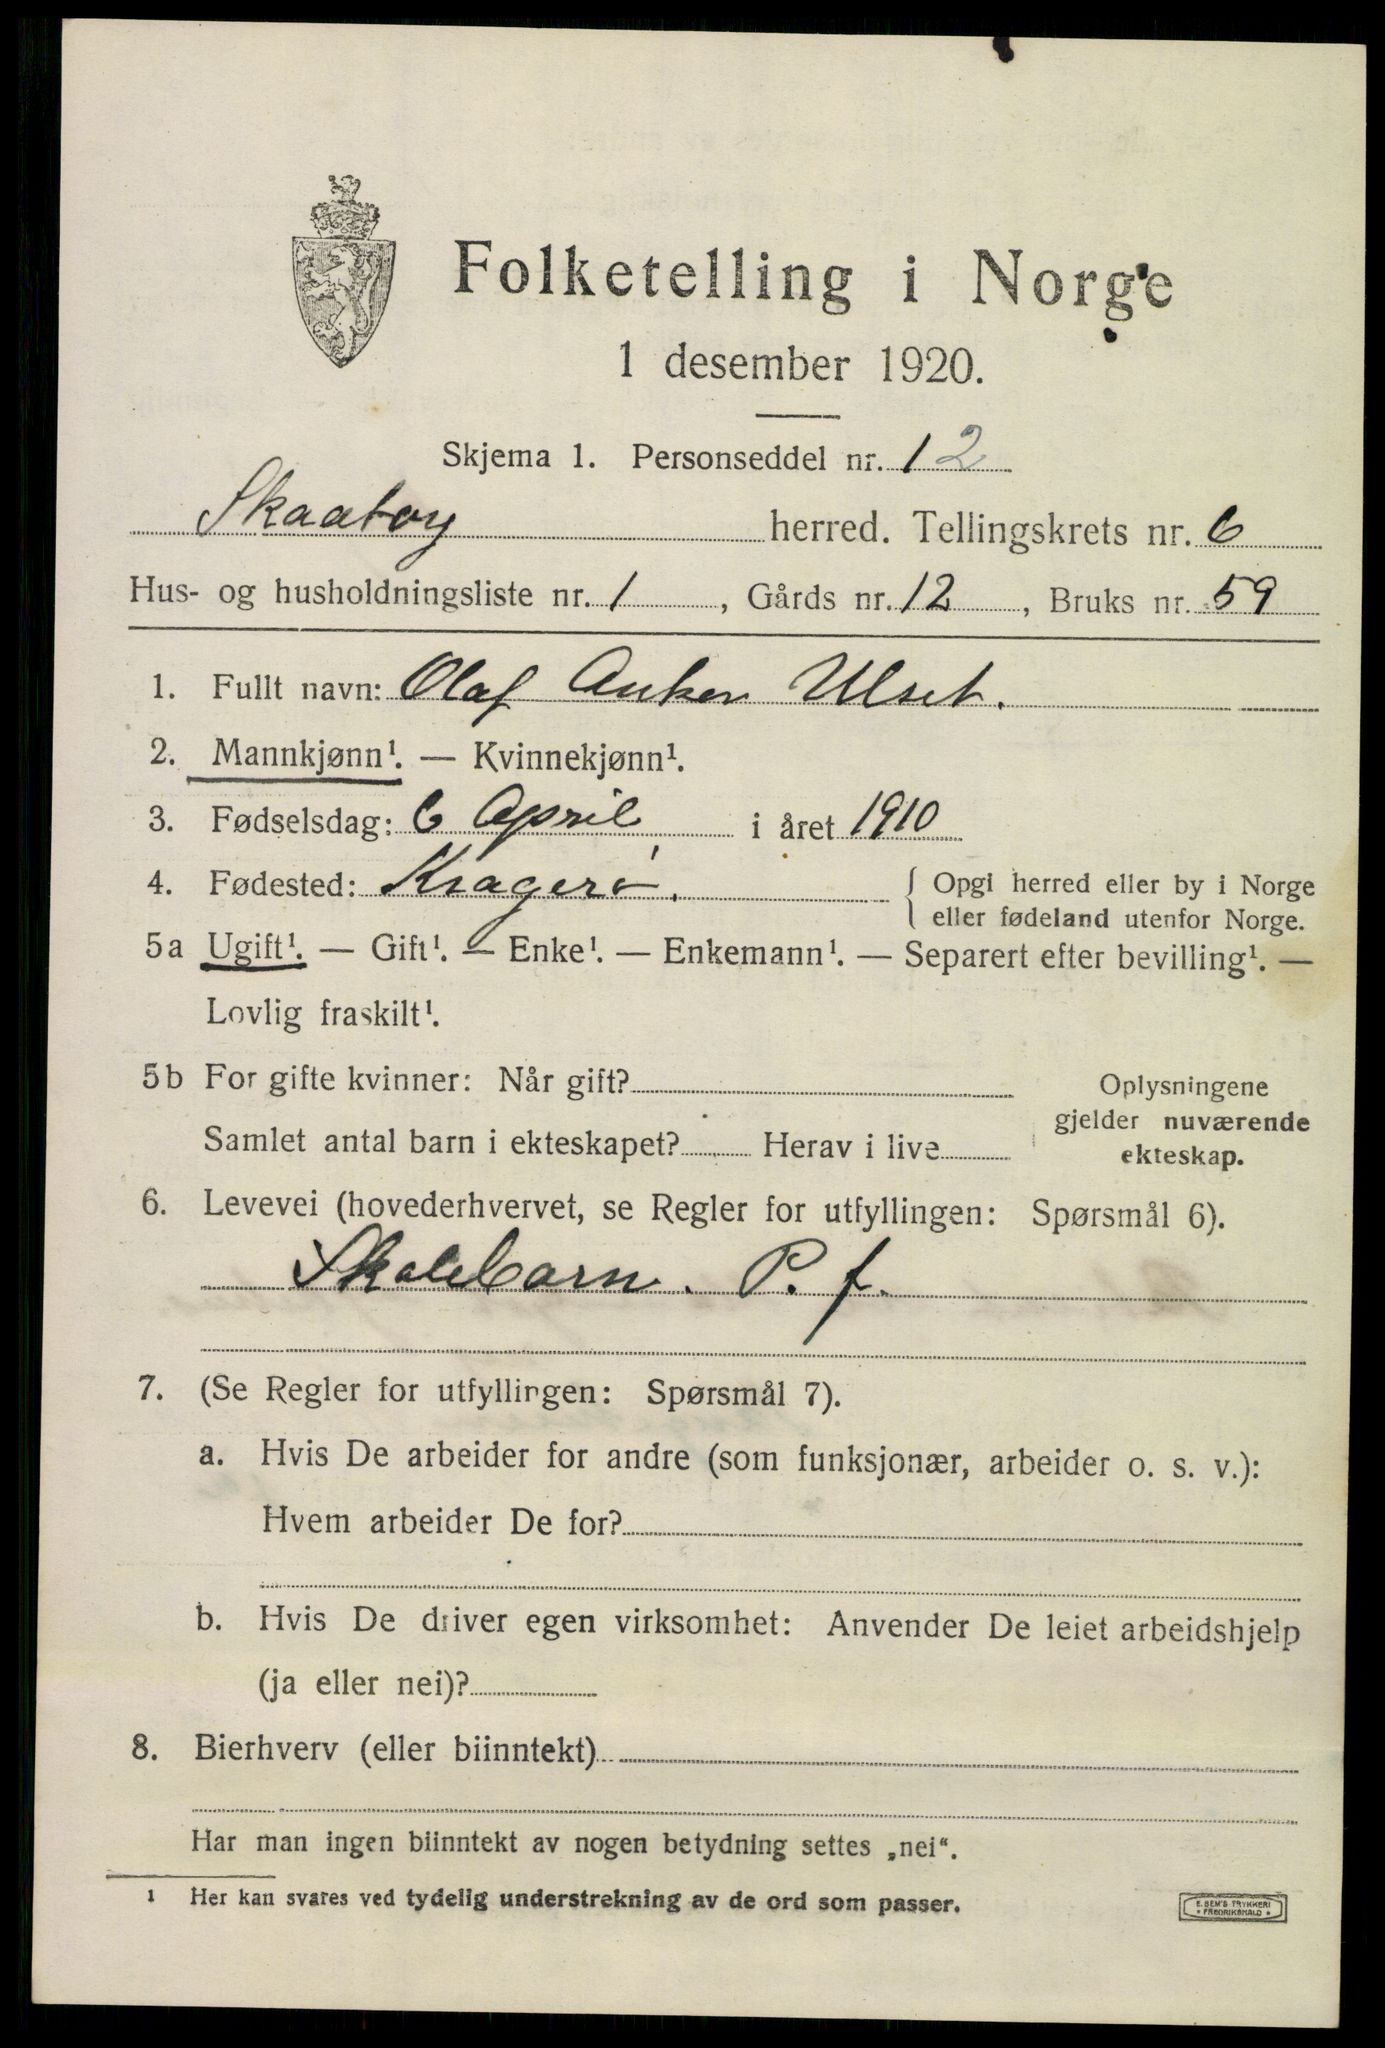 Folketelling i Norge
1 desember 1920.
Skjema 1. Personseddel nr. 12
Skaatøy herred. Tellingskrets nr. 6
Hus- og husholdningsliste nr. 1, Gårds nr. 12, Bruks nr. 59
1. Fullt navn: Olaf Anker Ulset.
2. Mannkjønn¹. — Kvinnekjønn¹.
3. Fødselsdag: 6 April i året 1910
4. Fødested: Kragerø. { Opgi herred eller by i Norge
eller fødeland utenfor Norge.
5a Ugift¹. — Gift¹. — Enke¹. — Enkemann¹. — Separert efter bevilling¹. —
Lovlig fraskilt¹.
5b For gifte kvinner: Når gift?
Samlet antal barn i ekteskapet? Herav i live
Oplysningene
gjelder nuværende
ekteskap.
6. Levevei (hovederhvervet, se Regler for utfyllingen: Spørsmål 6).
Skolebarn. P. f.
7. (Se Regler for utfyllingen: Spørsmål 7).
a. Hvis De arbeider for andre (som funksjonær, arbeider o. s. v.):
Hvem arbeider De for?
b. Hvis De driver egen virksomhet: Anvender De leiet arbeidshjelp
(ja eller nei)?
8. Bierhverv (eller biinntekt)
Har man ingen biinntekt av nogen betydning settes „nei“.
¹ Her kan svares ved tydelig understrekning av de ord som passer.
E. SEM'S TRYKKERI
* FREDRIKSHALD *